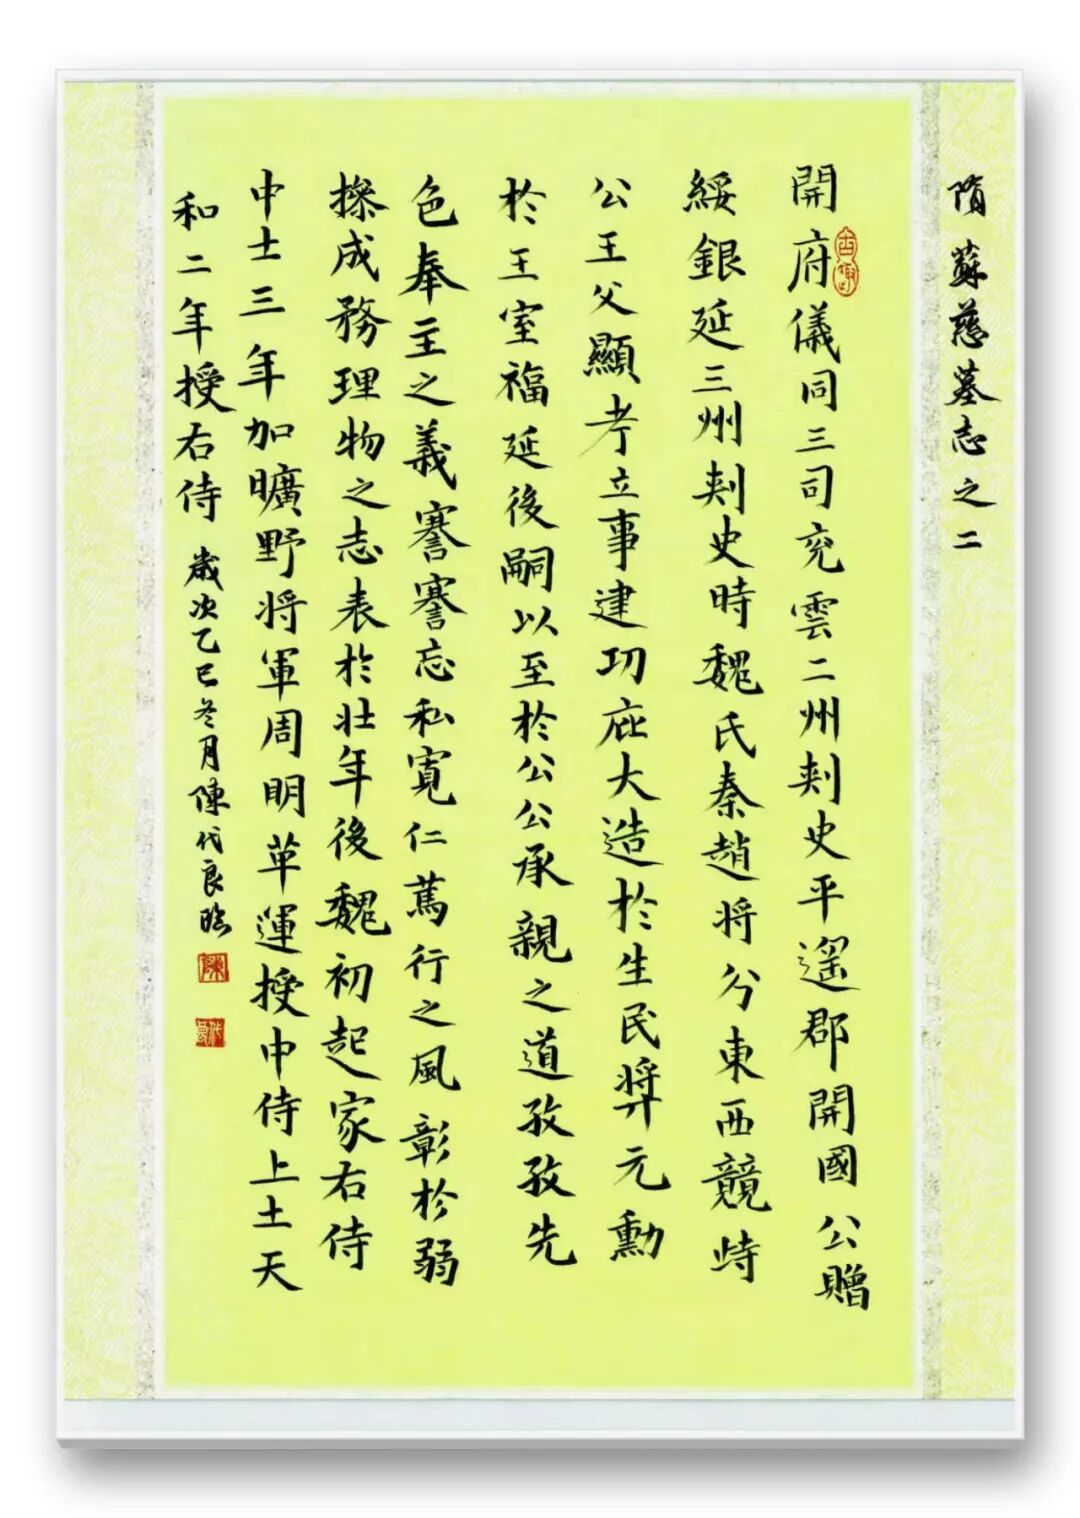 隋蘇慈墓志之二
開府儀同三司兖雲二州刾史平遥郡開國公贈
綏銀延三州刾史時魏氏秦趙將分東西競峙
公王父顯考立事建功庇大造於生民奨元勳
於王室福延後嗣以至於公公承親之道孜孜先
色奉主之義謇謇忘私寛仁蔿行之風彰於弱
操成務理物之志表於壮年後魏初起家右侍
中士三年加曠野将軍周明革運授中侍上士天
和二年授右侍 歲次乙巳冬月陳代良臨
陳
代良